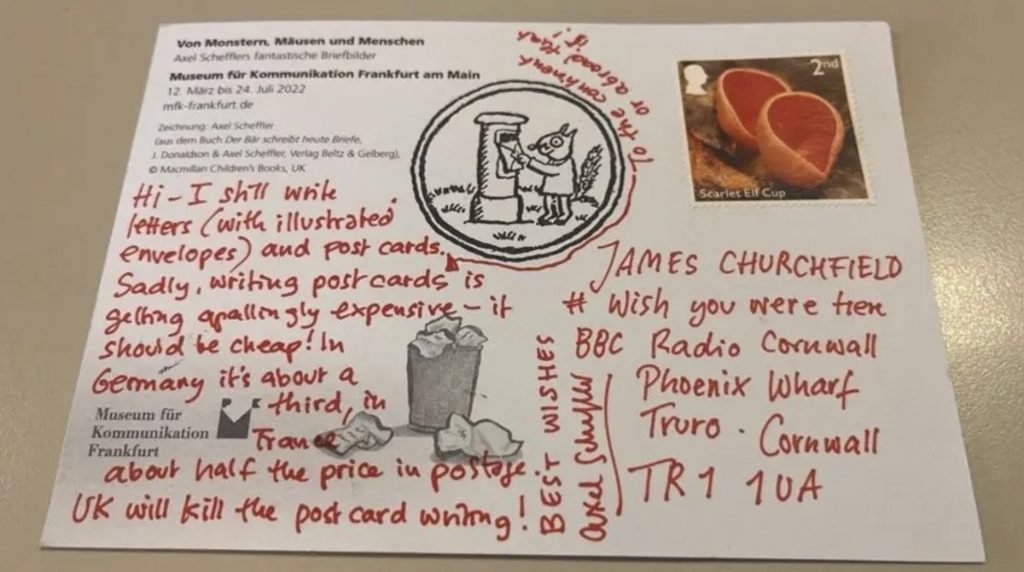 Von Monstern, Mäusen und Menschen
Axel Schefflers fantastische Briefbilder
Museum für Kommunikation Frankfurt am Main
12. März bis 24. Juli 2022
mfk-frankfurt.de
Zeichnung: Axel Scheffler
(aus dem Buch Der Bär schreibt heute Briefe,
J. Donaldson & Axel Scheffler, Verlag Beltz & Gelberg),
© Macmillan Children's Books, UK
Hi - I still write
letters (with illustrated
envelopes) and post cards.
Sadly, writing postcards is
getting apallingly expensive - it
should be cheap! In
Germany it's about a
third, in
France
about half the price in postage.
UK will kill the post card writing!
Museum für
Kommunikation
Frankfurt
To the continent
or abroad
2nd
Scarlet Elf Cup
JAMES CHURCHFIELD
# Wish you were here
BBC Radio Cornwall
Phoenix Wharf
Truro . Cornwall
TR1 1UA
BEST WISHES
Axel Scheffler